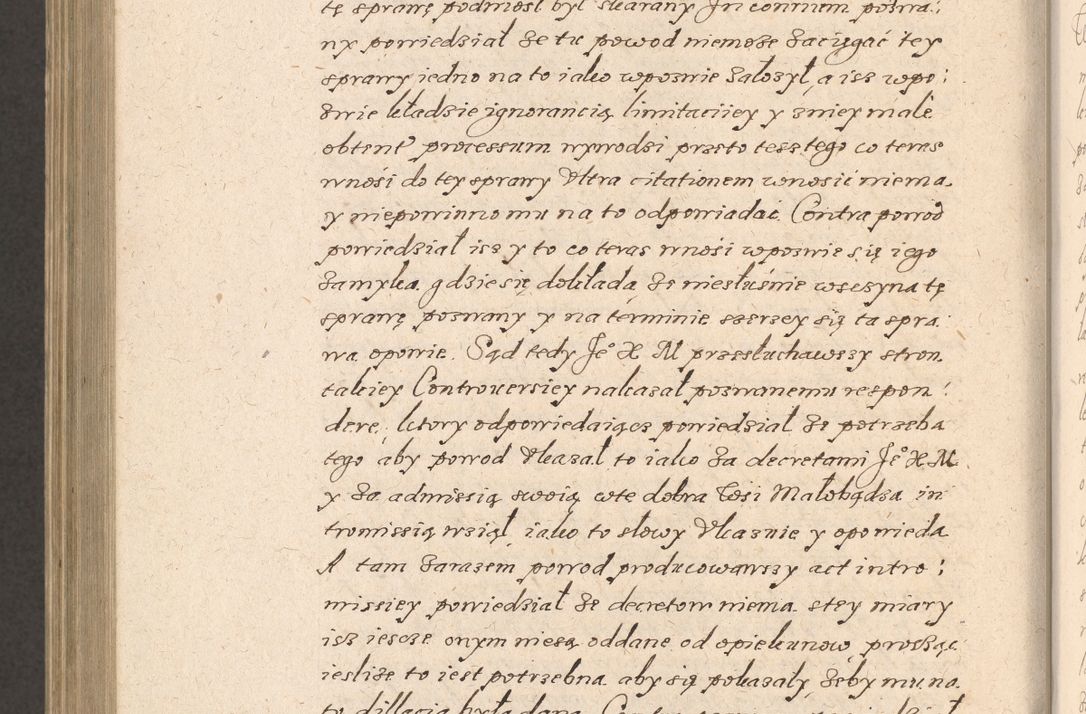 tę sprawę podniosł był skarany In contrium pozwa:
ny powiedział że tu powod niemoże zaciągać tey
sprawy iedno na to iako wpozwie założył, a isz wpo:
zwie kładzie ignorancią limitaciiey y zniey male
obtent processum wywodzi przeto tesz tego co teras
wnośi do tey sprawy Ultra citationem wnosić niema
y niepowinno mu na to odpowiadać Contra powod
powiedział isz y to co teras wnośi wpozwie się iego
zamyka gdzie się dokłada że niesłuśnie wsczyna tę
sprawę pozwany y na términie szerzey się ta spra
wa opowie. Sąd tedy Je° K M przesłuchawszy stron
takiey Controuersiey nakazał pozwanemu respon:
dere, ktory odpowiedaiącz powiedział że potrzeba
tego aby powod Ukazał to iako za decretami Je° K M
y za admissią swoią wte dobra Wsi Małobądza in
tromissią wziął, iako to słowy Ukaznie y opowieda
A tam zarazem powod producowawszy act intro:
missiey powiedział że decretow niema ztey miary
isz iescze onym niesą oddane od opiekunow prosząc
ieslisze to iest potrzebna aby się pokazały żeby mu na
to dillacia była dana